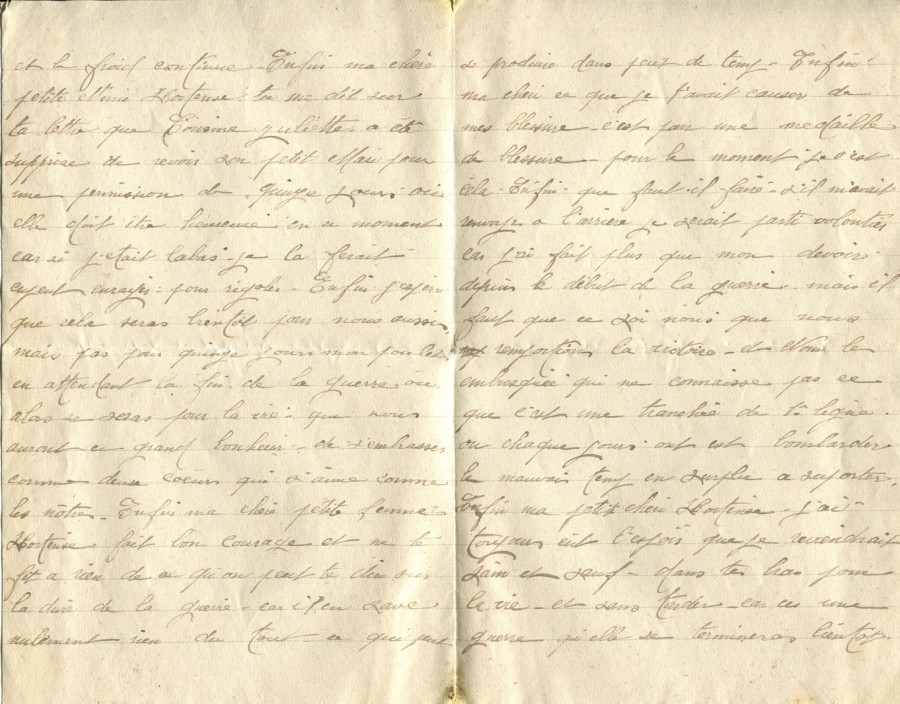 et le froid continue - Enfin ma chère
petite Amie Hortense. tu me dit sur
ta lettre que Cousine Juliette a été
supprise de revoir son petit Mari pour
une permission de quinze jours. oui
elle doit itre heureuse. en se moment
car si j'etait labas. je la ferait
enrager. pour rigoler - Enfin j'espère
que cela seras bientot pour nous aussi,
mais pas pour quinze jours mon poulet
en attendant la fin de la guerre. ou
alas se seras pour la vie - que nous
auront ce grand bonheur - de s'embrasser
comme deux coeurs qui s'aime comme
les nôtres - Enfin ma chère petite femme
Hortense. fait bon courage et ne te
fit a rien de ce qu'on peut te dire sur
la dure de la guerre - car il en save
nulement rien du tout ce qui peut
se produire dans peux de temp - Enfin
ma cheri ce que je t'avait causer de
mes blessure - c'est par une medaille
de blessure - pour le moment je n'est
cela - Enfin - que faut-il faire - s'il m'avait
renvoyé a l'arrière je serait parti volontier
car j'ai fait plus que mon devoir
depuis le début de la guerre - mais il
faut que ce soi nous que nous
remportions la victoire - et Non le
embusquée qui ne connaisse pas ce
que c'est une tranchée de 1er ligne.
ou chaque jours ont est bombarder
le mauvais temp en surplu a suporter,
Enfin ma petite cheri Hortense - j'ai
toujours eut l'espoir que je reviendrait
Sain et Sauf - dans tes bras pour
la vie - et sans tarder - car ces une
guerre qu'elle se termineras bientot.